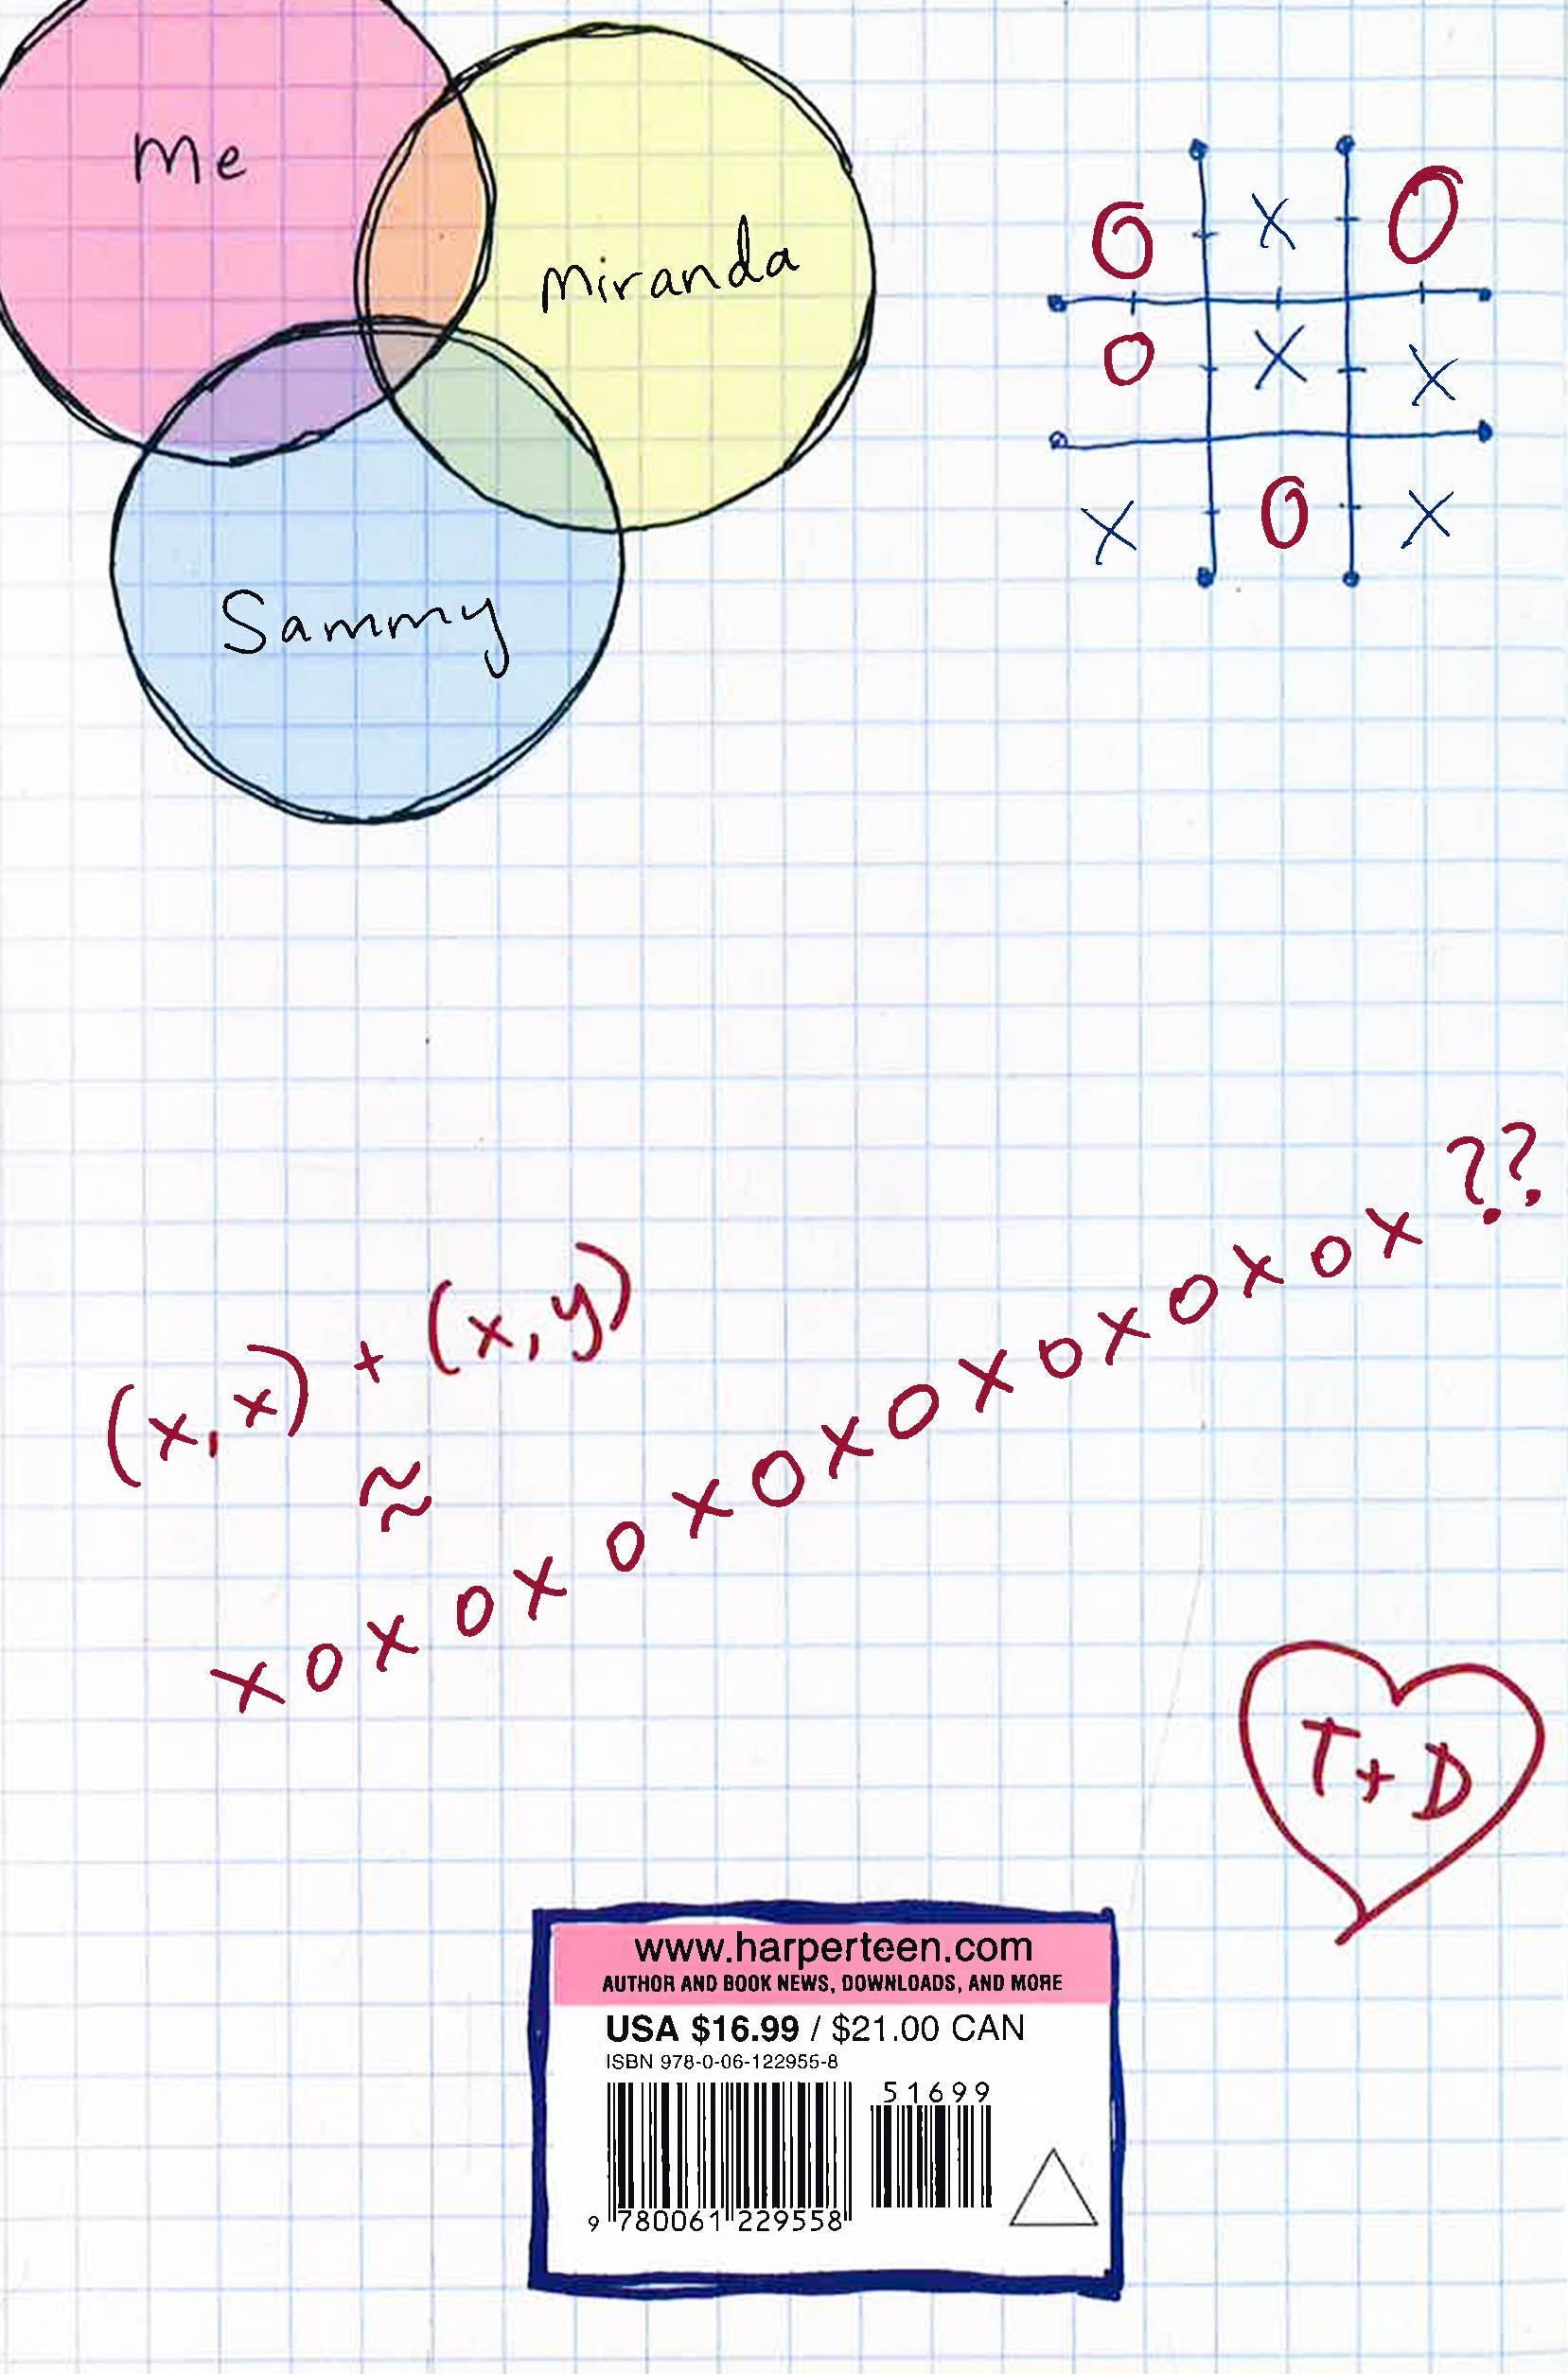 Me
Miranda
Sammy
O X O
O X X
X O X
(x,x) + (x,y)
≈
xoxoxoxoxoxoxoxox??
T+D
www.harperteen.com
AUTHOR AND BOOK NEWS, DOWNLOADS, AND MORE
USA $16.99 / $21.00 CAN
ISBN 978-0-06-122955-8
51699
9 780061 229558